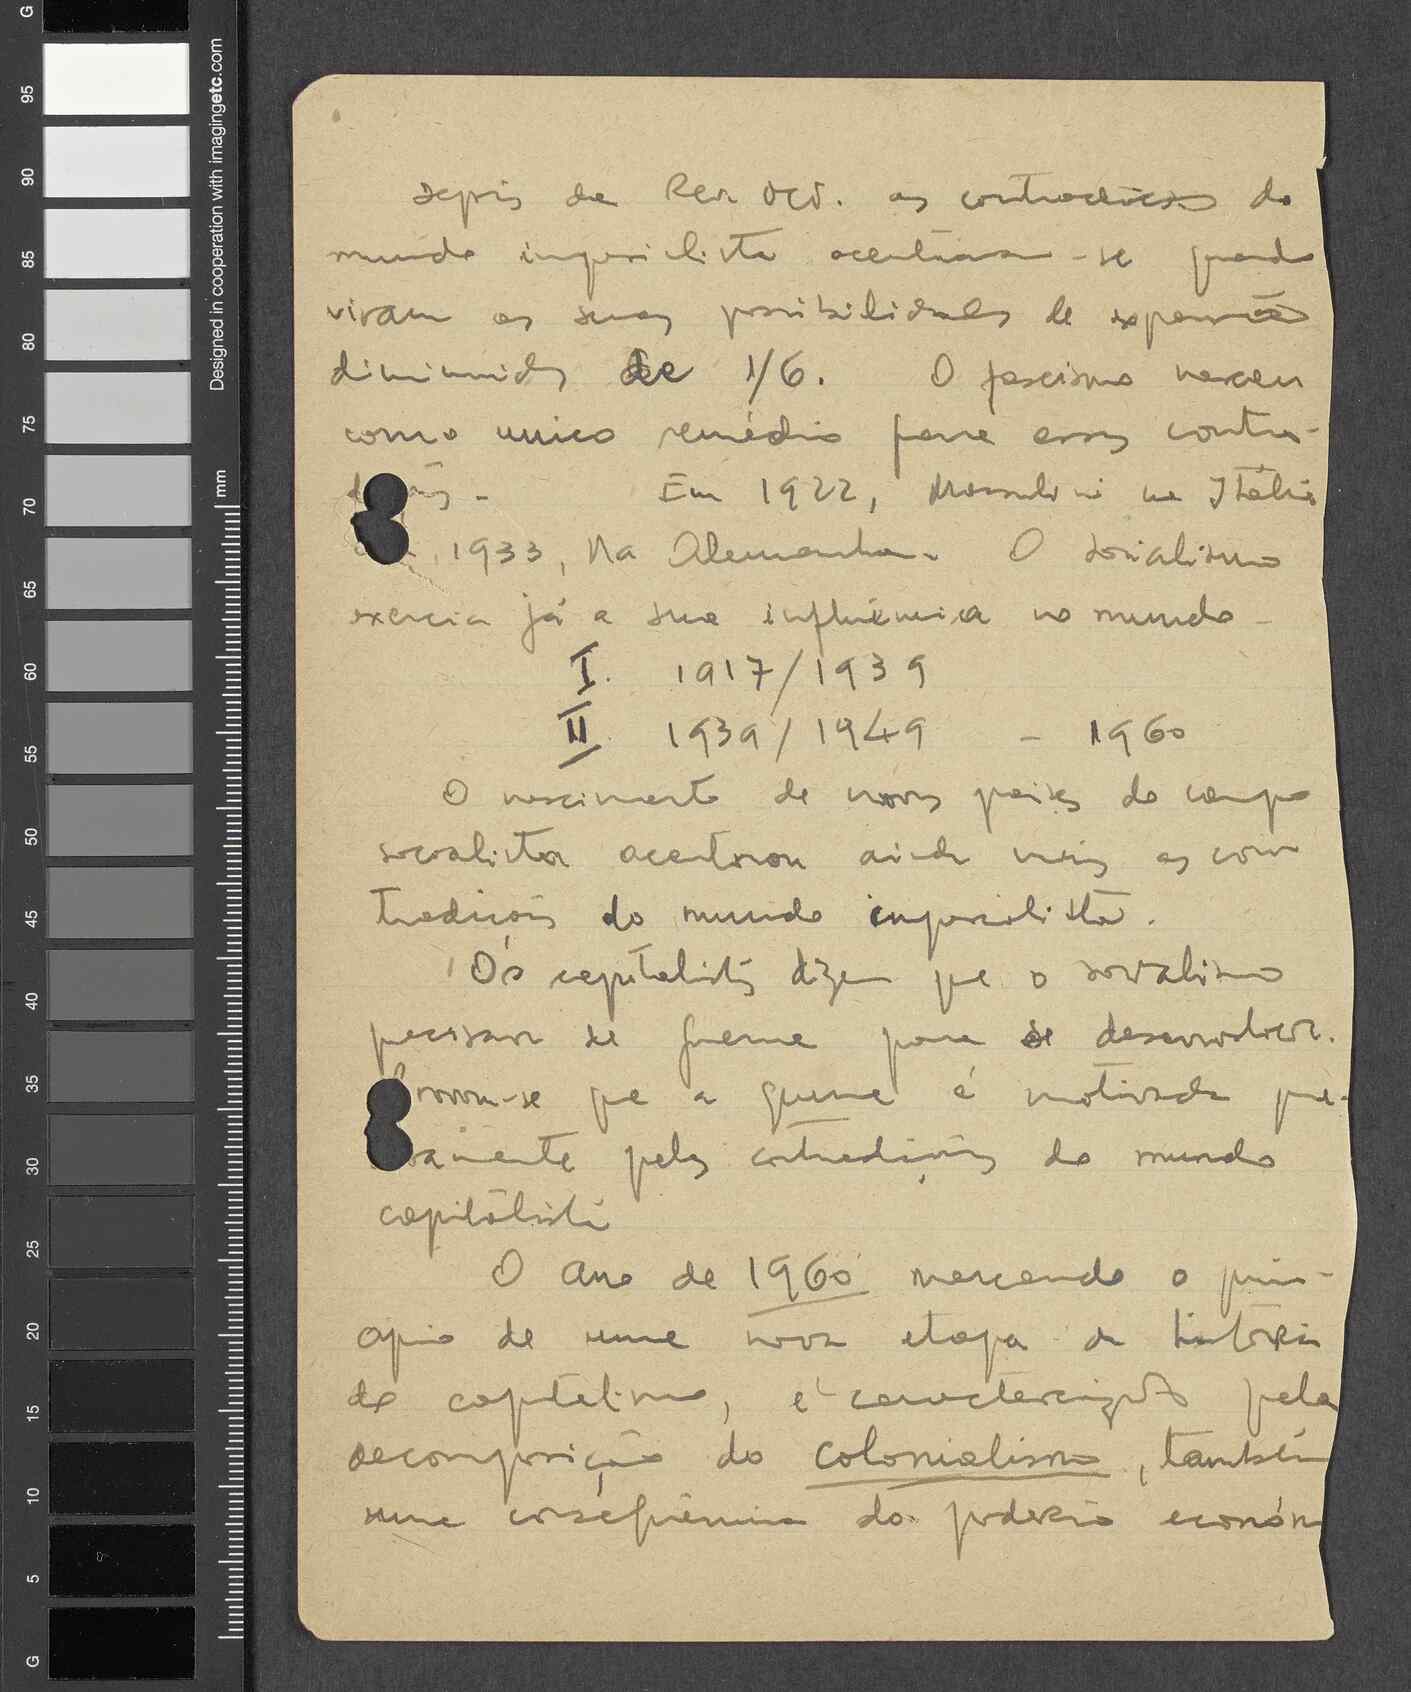 depois da Rev Oct. as contradições do
mundo imperialista acentuaram-se quando
viram as suas possibilidades de expansão
diminuidas de 1/6. O fascismo nasceu
como unico remédio para essas contra-
Em 1922, Mussolini na Itália
1933, Na Alemanha. O socialismo
exercia já a sua influência no mundo -
I. 1917/1939
II 1939/1949 - 1960
O nascimento de novos paises do campo
socialista acentuou ainda mais as con
tradições do mundo imperialista.
Os capitalistas dizem que o socialismo
precisava de guerra para se desenvolver.
Provou-se que a guerra é motivada
pelas contradições do mundo
capitalista
O ano de 1960 marcando o prin-
cipio de uma nova etapa da história
do capitalismo, é caracterizado pela
decomposição do colonialismo, também
uma consequência do poderio económ
G
95
90
85
80
75
70
65
60
55
50
45
40
35
30
25
20
15
10
5
G
Designed in cooperation with imagingetc.com
mm